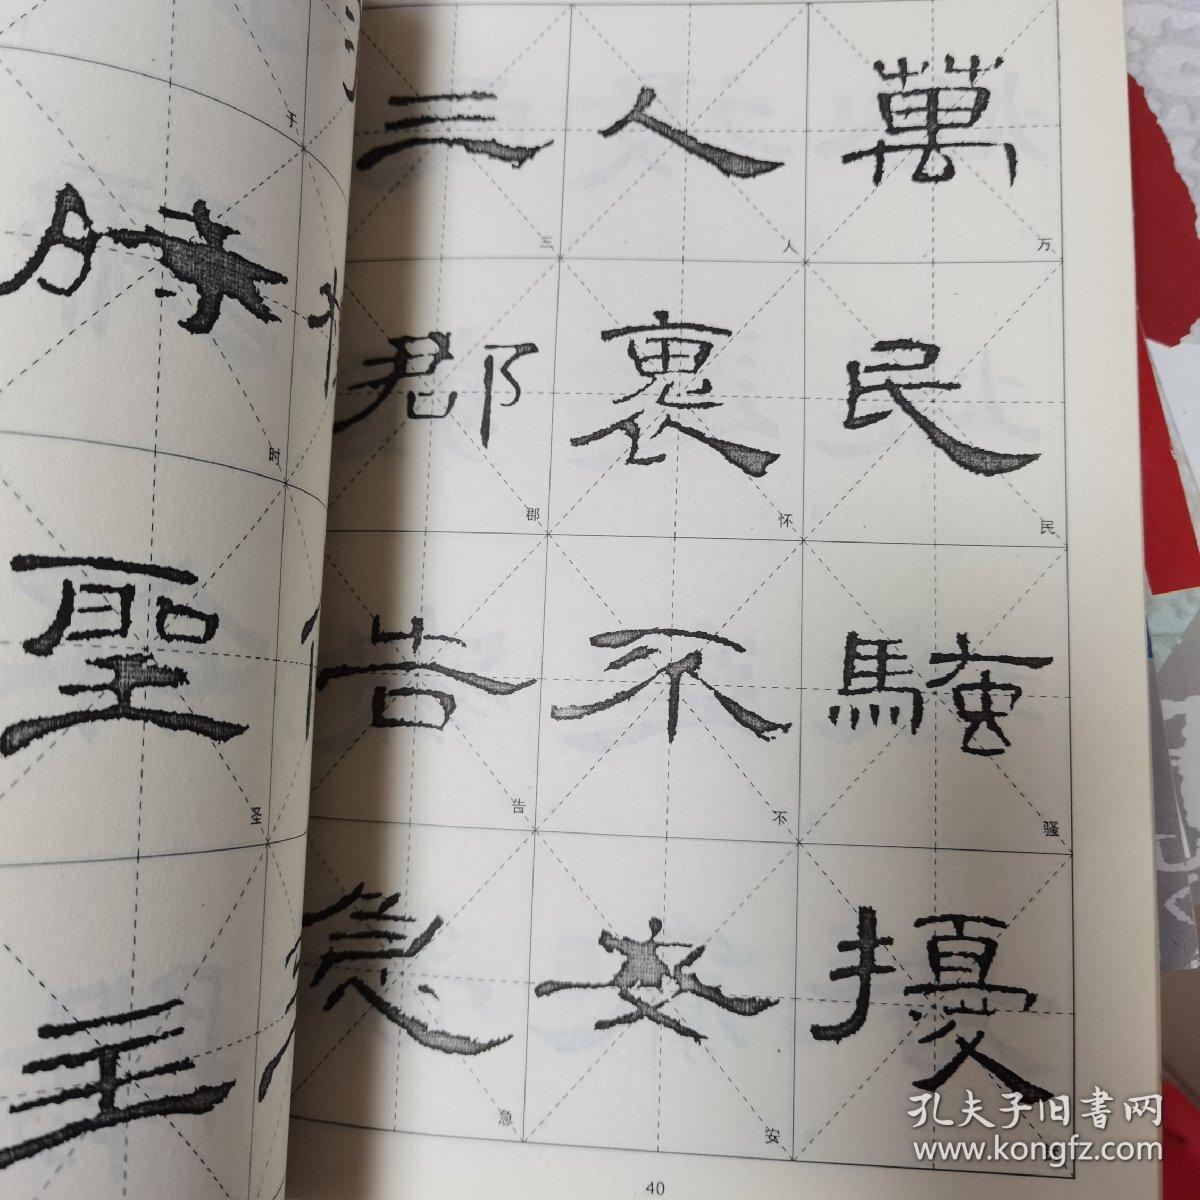 萬民騷擾
万
民
骚
人裏不安
人
怀
不
安
三郡告急
三
郡
告
急
于
時聖主
时
圣
40
孔夫子旧書网
www.kongfz.com